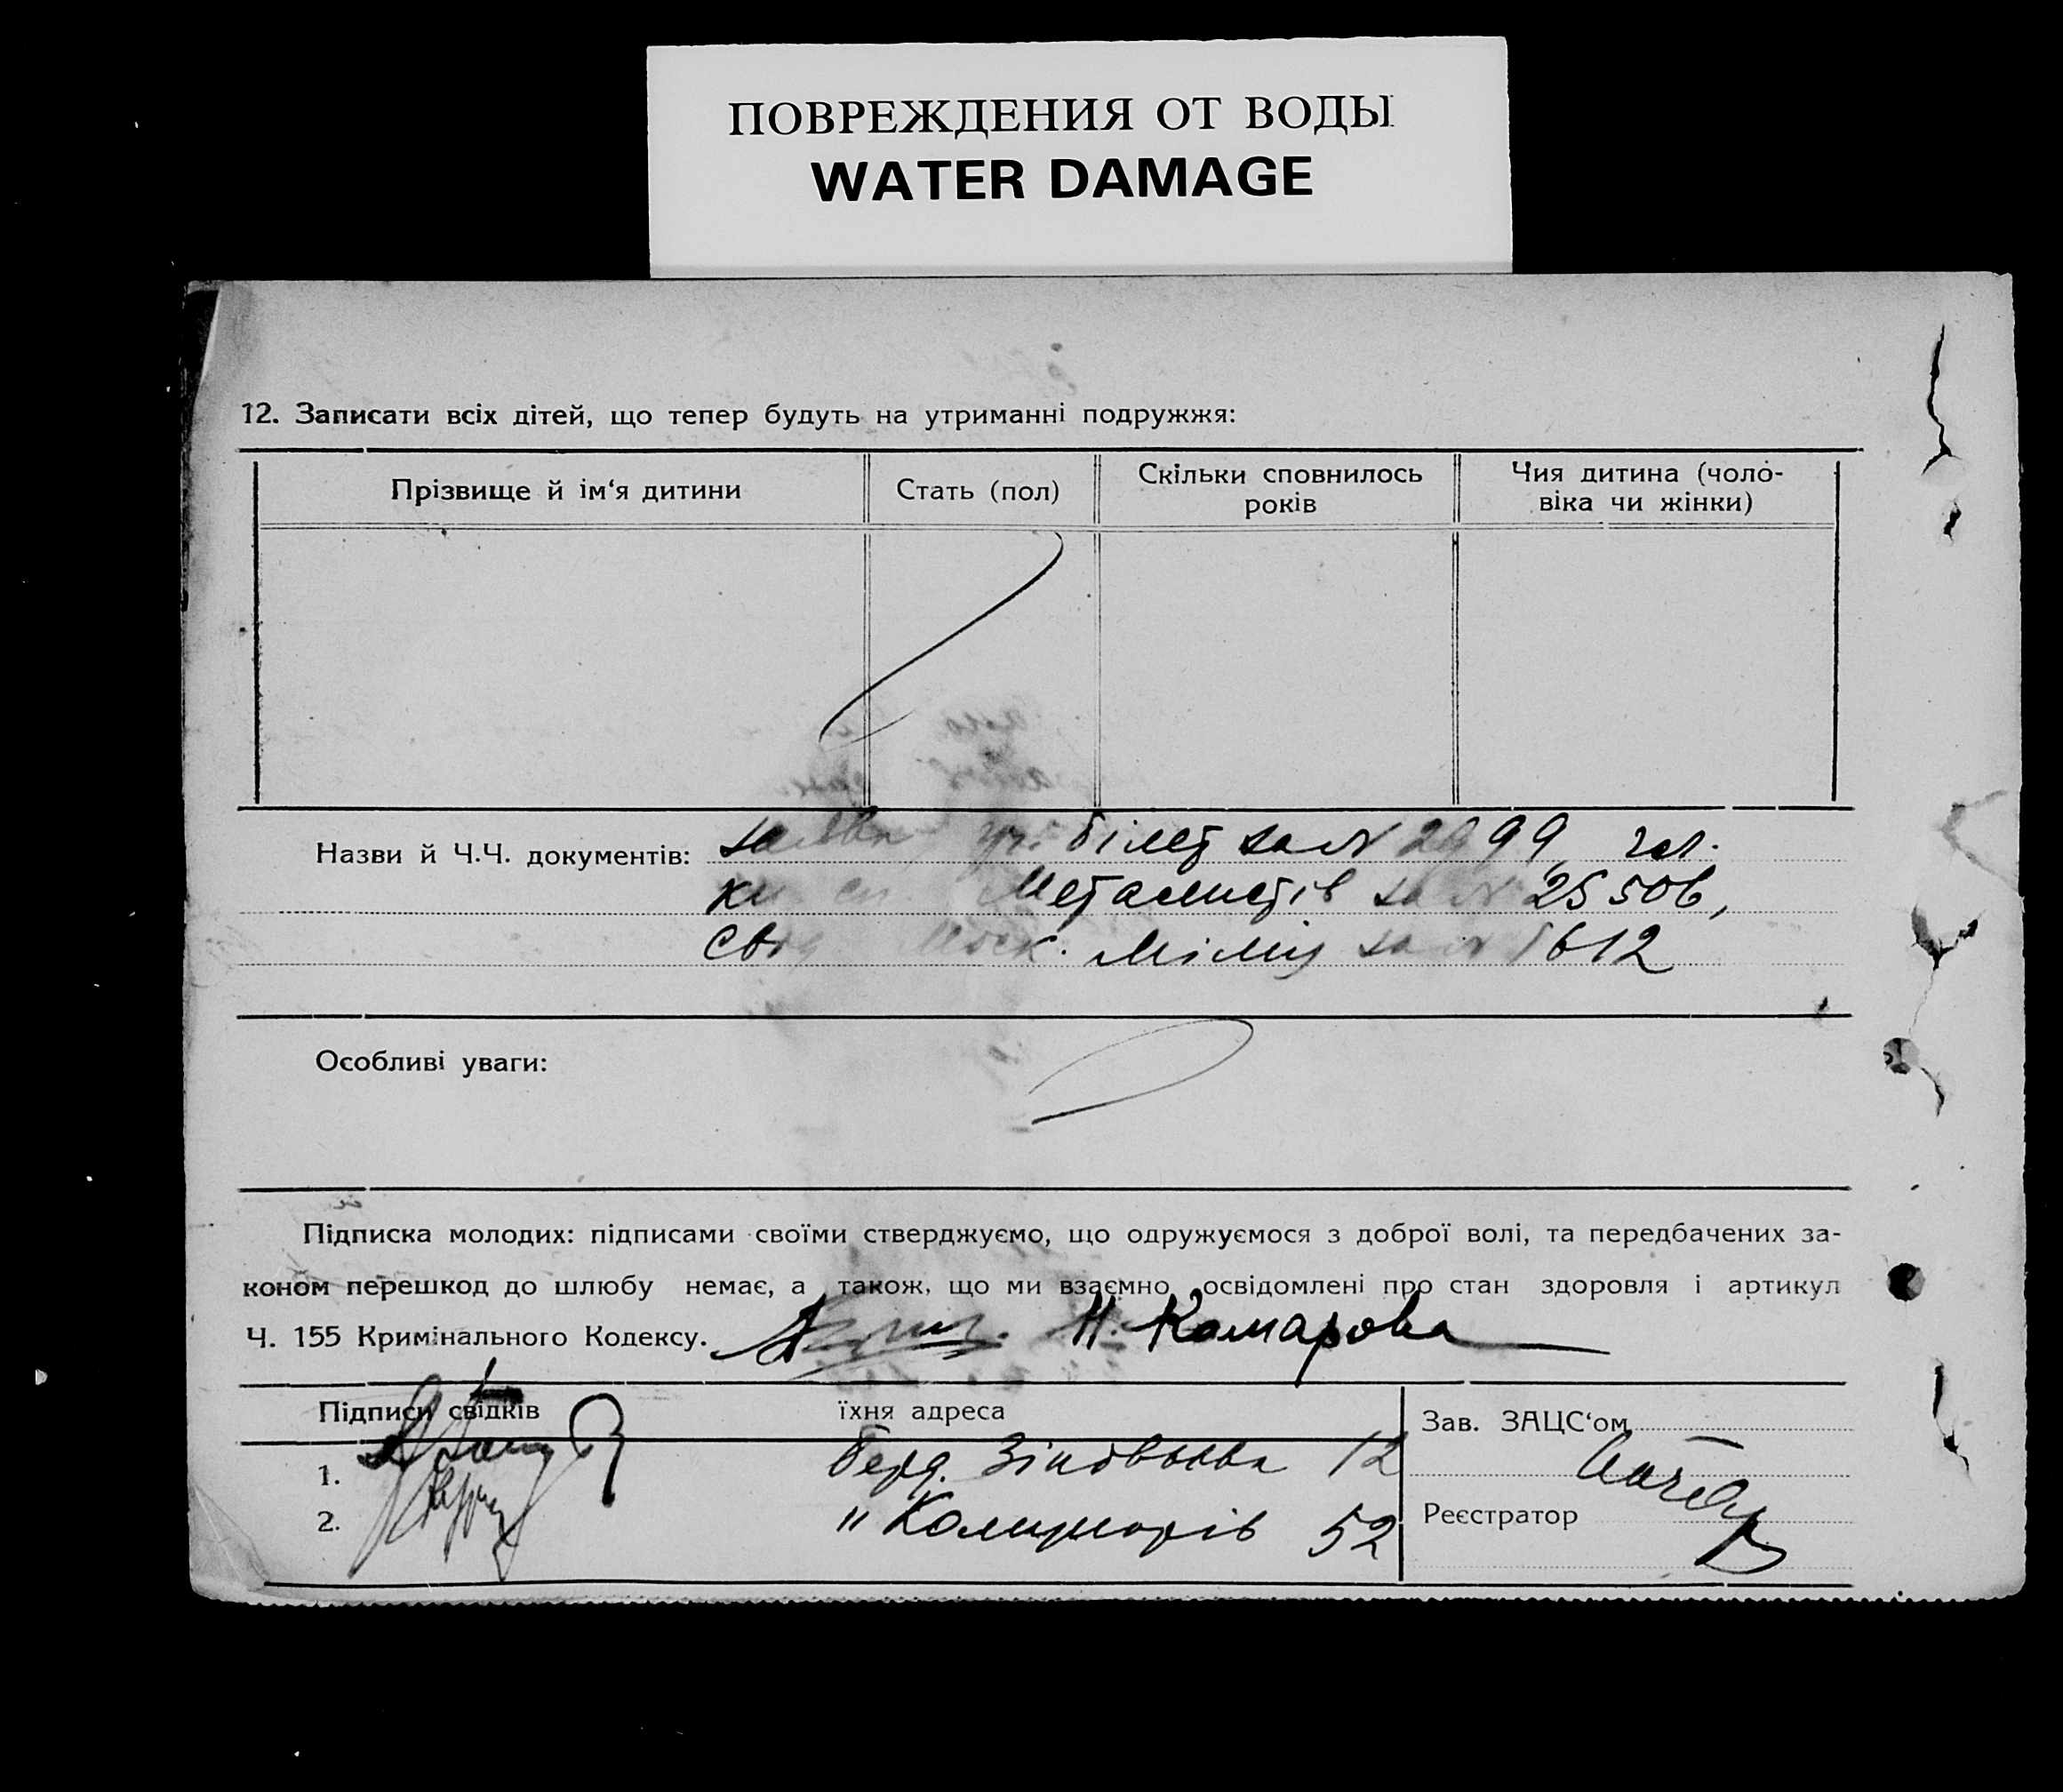 ПОВРЕЖДЕНИЯ ОТ ВОДЫ
WATER DAMAGE
12. Записати всіх дітей, що тепер будуть на утриманні подружжя:
Прізвище й ім‘я дитини
Стать (пол)
Скільки сповнилось
років
Чия дитина (чоло-
віка чи жінки)
Назви й Ч.Ч. документів: білет за № 2999
Металистів за № 25506,
Міліц за № 1612
Особливі уваги:
Підписка молодих: підписами своїми стверджуємо, що одружуємося з доброї волі, та передбачених за-
коном перешкод до шлюбу немає, а також, що ми взаємно освідомлені про стан здоровля і артикул
Ч. 155 Кримінального Кодексу. Н. Комарова
Підписи свідків
їхня адреса
Зав. ЗАЦС‘ом
1. Берд. Зіновьева 12
2. " 52
Реєстратор